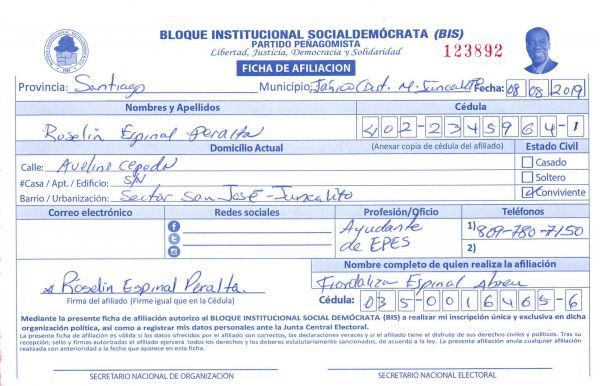 BLOQUE INSTITUCIONAL SOCIALDEMÓCRATA (BIS)
PARTIDO PEÑAGOMISTA
Libertad, Justicia, Democracia y Solidaridad
123892
FICHA DE AFILIACION
Provincia: Santiago Municipio: Dist. M. Juncalito Fecha: 08 08 2019
Nombres y Apellidos Cédula
Roselin Espinal Peralta 402-2345964-1
Domicilio Actual (Anexar copia de cédula del afiliado) Estado Civil
Calle: Avelino Cepeda Casado
#Casa / Apt. / Edificio: S/N Soltero
Barrio / Urbanización: Sector San José - Juncalito Conviviente
Correo electrónico Redes sociales Profesión/Oficio Teléfonos
Ayudante de EPES
1) 809-780-7150
2)
Nombre completo de quien realiza la afiliación
Roselin Espinal Peralta. Fiordaliza Espinal Abreu
Firma del afiliado (Firme igual que en la Cédula) Cédula: 035-0016465-6
Mediante la presente ficha de afiliación autorizo al BLOQUE INSTITUCIONAL SOCIAL DEMÓCRATA (BIS) a realizar mi inscripción única y exclusiva en dicha
organización política, así como a registrar mis datos personales ante la Junta Central Electoral.
La presente ficha de afiliación es válida si los datos ofrecidos por el afiliado son correctos, las declaraciones veraces y si el afiliado tiene el disfrute de sus derechos civiles y políticos. Tras su
recepción, sello y firmas autorizadas el afiliado ejercerá todos los derechos y los deberes estatutariamente sancionados, de acuerdo a la ley. La presente afiliación anula cualquier afiliación
realizada con anterioridad a la fecha que aparece en esta ficha.
SECRETARIO NACIONAL DE ORGANIZACIÓN SECRETARIO NACIONAL ELECTORAL